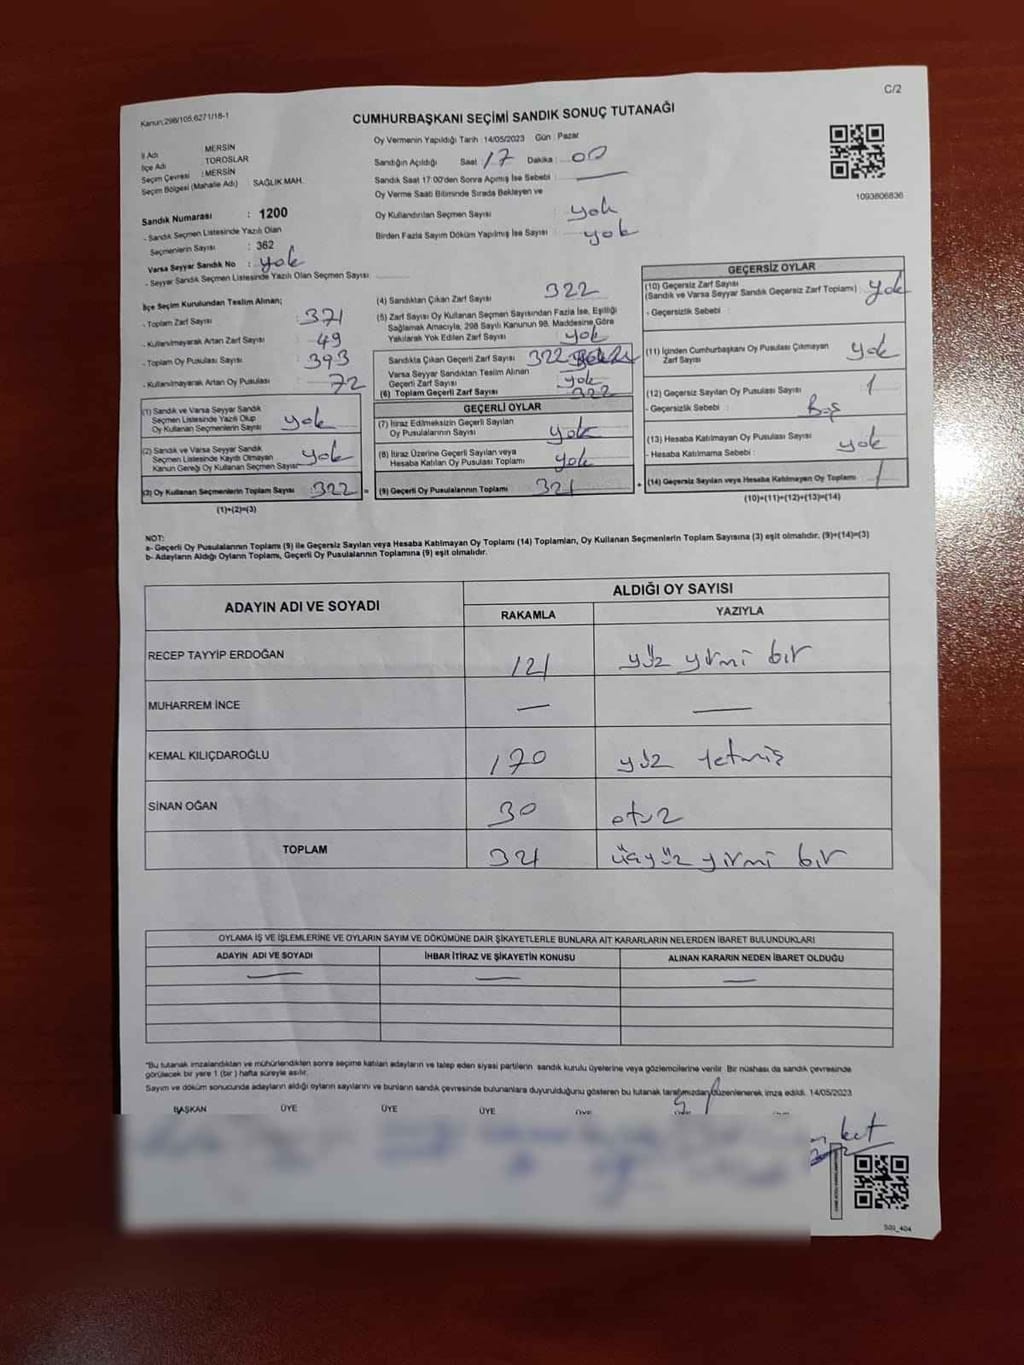 C/2
Kanun:298/105,6271/18-1
CUMHURBAŞKANI SEÇİMİ SANDIK SONUÇ TUTANAĞI
İl Adı : MERSİN
İlçe Adı : TOROSLAR
Seçim Çevresi : MERSİN
Seçim Bölgesi (Mahalle Adı) SAĞLIK MAH.
Sandık Numarası : 1200
- Sandık Seçmen Listesinde Yazılı Olan
Seçmenlerin Sayısı : 362
Varsa Seyyar Sandık No : yok
- Seyyar Sandık Seçmen Listesinde Yazılı Olan Seçmen Sayısı :
Oy Vermenin Yapıldığı Tarih :14/05/2023 Gün : Pazar
Sandığın Açıldığı Saat : 17 Dakika : 00
Sandık Saat 17:00'den Sonra Açılmış İse Sebebi : —
Oy Verme Saati Bitiminde Sırada Bekleyen ve
Oy Kullandırılan Seçmen Sayısı : yok
Birden Fazla Sayım Döküm Yapılmış İse Sayısı : yok
1093806836
İlçe Seçim Kurulundan Teslim Alınan;
- Toplam Zarf Sayısı : 371
- Kullanılmayarak Artan Zarf Sayısı : 49
- Toplam Oy Pusulası Sayısı : 393
- Kullanılmayarak Artan Oy Pusulası : 72
(1) Sandık ve Varsa Seyyar Sandık
Seçmen Listesinde Yazılı Olup
Oy Kullanan Seçmenlerin Sayısı : yok
(2) Sandık ve Varsa Seyyar Sandık
Seçmen Listesinde Kayıtlı Olmayan
Kanun Gereği Oy Kullanan Seçmen Sayısı : yok
(3) Oy Kullanan Seçmenlerin Toplam Sayısı : 322 =
(1)+(2)=(3)
(4) Sandıktan Çıkan Zarf Sayısı : 322
(5) Zarf Sayısı Oy Kullanan Seçmen Sayısından Fazla İse, Eşitliği
Sağlamak Amacıyla, 298 Sayılı Kanunun 98. Maddesine Göre
Yakılarak Yok Edilen Zarf Sayısı : yok
Sandıkta Çıkan Geçerli Zarf Sayısı : 322
Varsa Seyyar Sandıktan Teslim Alınan
Geçerli Zarf Sayısı : yok
(6) Toplam Geçerli Zarf Sayısı : 322
GEÇERLİ OYLAR
(7) İtiraz Edilmeksizin Geçerli Sayılan
Oy Pusulalarının Sayısı : yok
(8) İtiraz Üzerine Geçerli Sayılan veya
Hesaba Katılan Oy Pusulası Toplamı : yok
(9) Geçerli Oy Pusulalarının Toplamı : 321 +
GEÇERSİZ OYLAR
(10) Geçersiz Zarf Sayısı
(Sandık ve Varsa Seyyar Sandık Geçersiz Zarf Toplamı) : yok
- Geçersizlik Sebebi :
(11) İçinden Cumhurbaşkanı Oy Pusulası Çıkmayan
Zarf Sayısı : yok
(12) Geçersiz Sayılan Oy Pusulası Sayısı : 1
- Geçersizlik Sebebi : Boş
(13) Hesaba Katılmayan Oy Pusulası Sayısı : yok
- Hesaba Katılmama Sebebi :
(14) Geçersiz Sayılan veya Hesaba Katılmayan Oy Toplamı : 1
(10)+(11)+(12)+(13)=(14)
NOT:
a- Geçerli Oy Pusulalarının Toplamı (9) ile Geçersiz Sayılan veya Hesaba Katılmayan Oy Toplamı (14) Toplamları, Oy Kullanan Seçmenlerin Toplam Sayısına (3) eşit olmalıdır. (9)+(14)=(3)
b- Adayların Aldığı Oyların Toplamı, Geçerli Oy Pusulalarının Toplamına (9) eşit olmalıdır.
ADAYIN ADI VE SOYADI
ALDIĞI OY SAYISI
RAKAMLA YAZIYLA
RECEP TAYYİP ERDOĞAN 121 yüz yirmi bir
MUHARREM İNCE — —
KEMAL KILIÇDAROĞLU 170 yüz yetmiş
SİNAN OĞAN 30 otuz
TOPLAM 321 üçyüz yirmi bir
OYLAMA İŞ VE İŞLEMLERİNE VE OYLARIN SAYIM VE DÖKÜMÜNE DAİR ŞİKAYETLERLE BUNLARA AİT KARARLARIN NELERDEN İBARET BULUNDUKLARI
ADAYIN ADI VE SOYADI İHBAR İTİRAZ VE ŞİKAYETİN KONUSU ALINAN KARARIN NEDEN İBARET OLDUĞU
— — —
"Bu tutanak imzalandıktan ve mühürlendikten sonra seçime katılan adayların ve talep eden siyasi partilerin sandık kurulu üyelerine veya gözlemcilerine verilir. Bir nüshası da sandık çevresinde
görülecek bir yere 1 (bir ) hafta süreyle asılır.
Sayım ve döküm sonucunda adayların aldığı oyların sayılarını ve bunların sandık çevresinde bulunanlara duyurulduğunu gösteren bu tutanak tarafımızdan düzenlenerek imza edildi. 14/05/2023
BAŞKAN ÜYE ÜYE ÜYE
S09_404